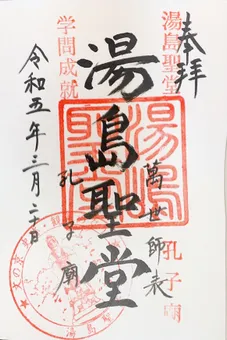 奉拝
湯島聖堂
孔子廟
萬世師表
湯島聖堂
湯島聖堂
孔子廟
学問成就
令和五年三月二十日